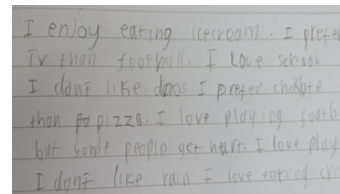 I enjoy eating icecream. I prefer
Tv than football. I love school
I dont like dinos I prefer
than pizza. I love playing
but some people get hurt. I love play
I dont like rain I love eating